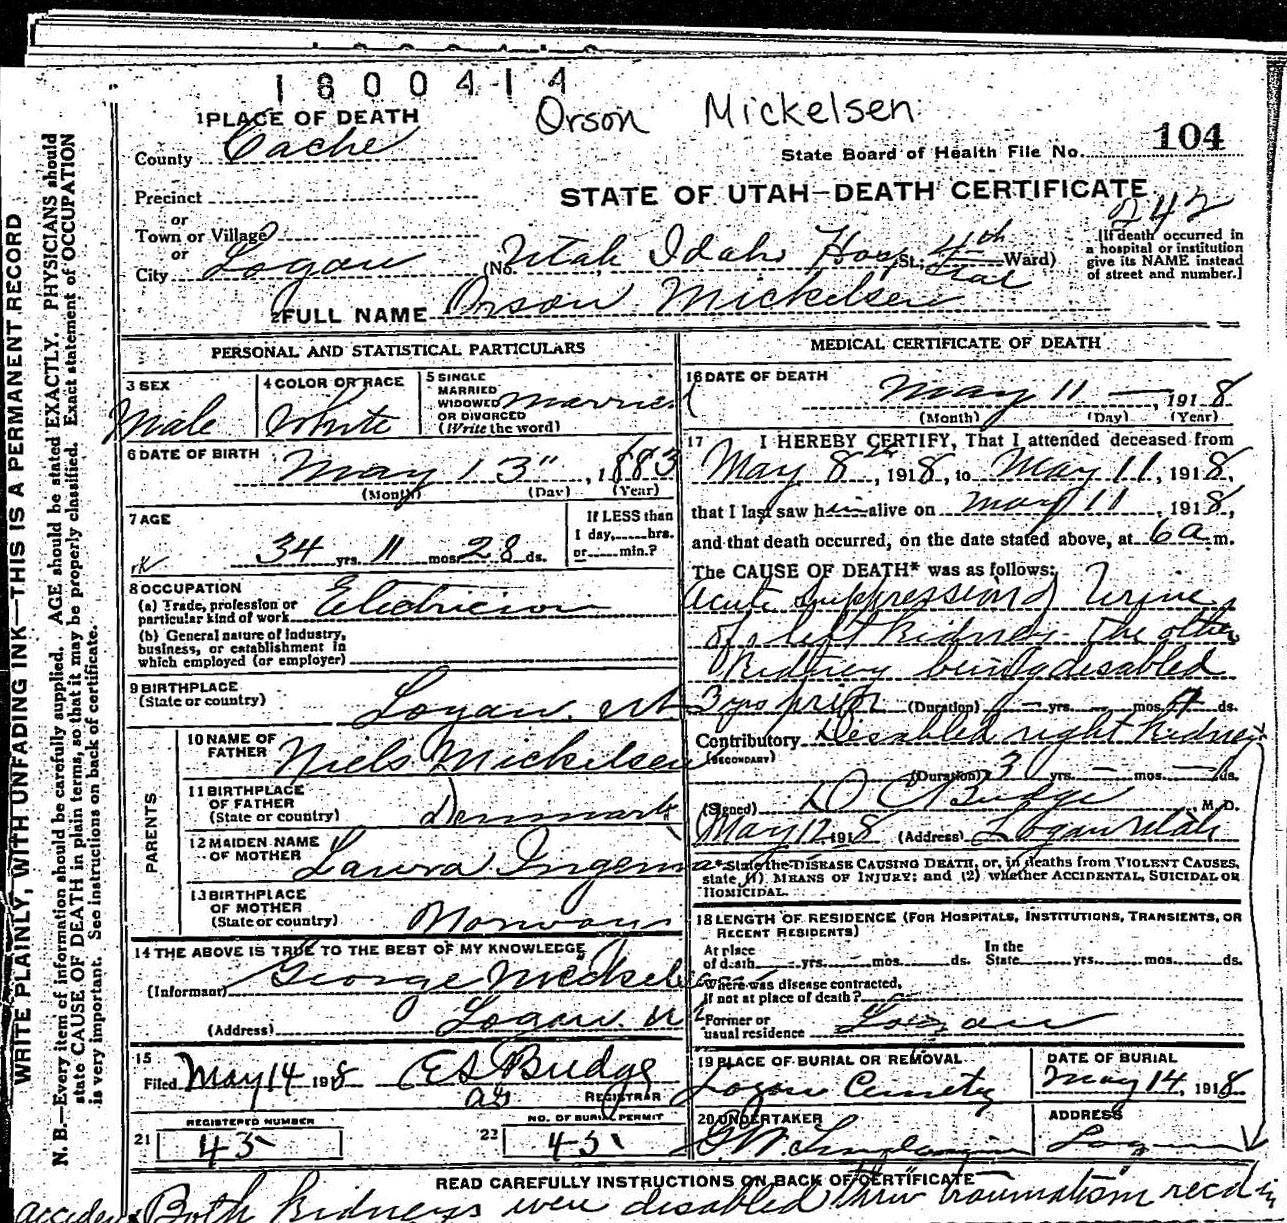 1800414
Orson Mickelsen
1 PLACE OF DEATH
County Cache
State Board of Health File No. 104
Precinct
STATE OF UTAH—DEATH CERTIFICATE
242
or
Town or Village
or
City Logan (No. Utah Idaho Hos St.; 4th Ward)
[If death occurred in
a hospital or institution
give its NAME instead
of street and number.]
2 FULL NAME Orson Mickelsen
PERSONAL AND STATISTICAL PARTICULARS
3 SEX
Male
4 COLOR OR RACE
White
5 SINGLE
MARRIED
WIDOWED
OR DIVORCED
(Write the word)
Married
6 DATE OF BIRTH
May 13", 1883
(Month) (Day) (Year)
7 AGE
34 yrs. 11 mos. 28 ds.
If LESS than
1 day,......hrs.
or......min.?
8 OCCUPATION
(a) Trade, profession or
particular kind of work Electrician
(b) General nature of industry,
business, or establishment in
which employed (or employer)
9 BIRTHPLACE
(State or country) Logan. Ut
PARENTS
10 NAME OF
FATHER Niels Mickelsen
11 BIRTHPLACE
OF FATHER
(State or country) Denmark
12 MAIDEN NAME
OF MOTHER Laura
13 BIRTHPLACE
OF MOTHER
(State or country)
14 THE ABOVE IS TRUE TO THE BEST OF MY KNOWLEDGE
(Informant) George Mickelsen
(Address) Logan. Ut
15
Filed May 14 1918 Budge
REGISTRAR
REGISTERED NUMBER
21 45
NO. OF BURIAL PERMIT
22 45
MEDICAL CERTIFICATE OF DEATH
16 DATE OF DEATH
May 11 — , 1918
(Month) (Day) (Year)
17 I HEREBY CERTIFY, That I attended deceased from
May 8th, 1918, to May 11, 1918,
that I last saw him alive on May 11, 1918,
and that death occurred, on the date stated above, at 6 a m.
The CAUSE OF DEATH* was as follows:
Acute Suppression of Urine
of left kidney the other
Kidney being disabled
3 yrs prior (Duration) — yrs. — mos. 4 ds.
Contributory Disabled right kidney
(SECONDARY)
(Duration) 3 yrs. — mos. — ds.
(Signed) D C Budge, M. D.
May 12 1918 (Address) Logan Utah
*State the DISEASE CAUSING DEATH, or, in deaths from VIOLENT CAUSES,
state (1) MEANS OF INJURY; and (2) whether ACCIDENTAL, SUICIDAL OR
HOMICIDAL.
18 LENGTH OF RESIDENCE (FOR HOSPITALS, INSTITUTIONS, TRANSIENTS, OR
RECENT RESIDENTS)
At place
of death......yrs......mos......ds.
In the
State......yrs......mos......ds.
Where was disease contracted,
if not at place of death?
Former or
usual residence Logan
19 PLACE OF BURIAL OR REMOVAL
Logan Cemetery
DATE OF BURIAL
May 14, 1918
20 UNDERTAKER
G. W. Lindquist
ADDRESS
Logan
READ CAREFULLY INSTRUCTIONS ON BACK OF CERTIFICATE
Both kidneys were disabled thru traumatism recd in
accident
WRITE PLAINLY, WITH UNFADING INK—THIS IS A PERMANENT RECORD
N. B.—Every item of information should be carefully supplied. AGE should be stated EXACTLY. PHYSICIANS should
state CAUSE OF DEATH in plain terms, so that it may be properly classified. Exact statement of OCCUPATION
is very important. See instructions on back of certificate.